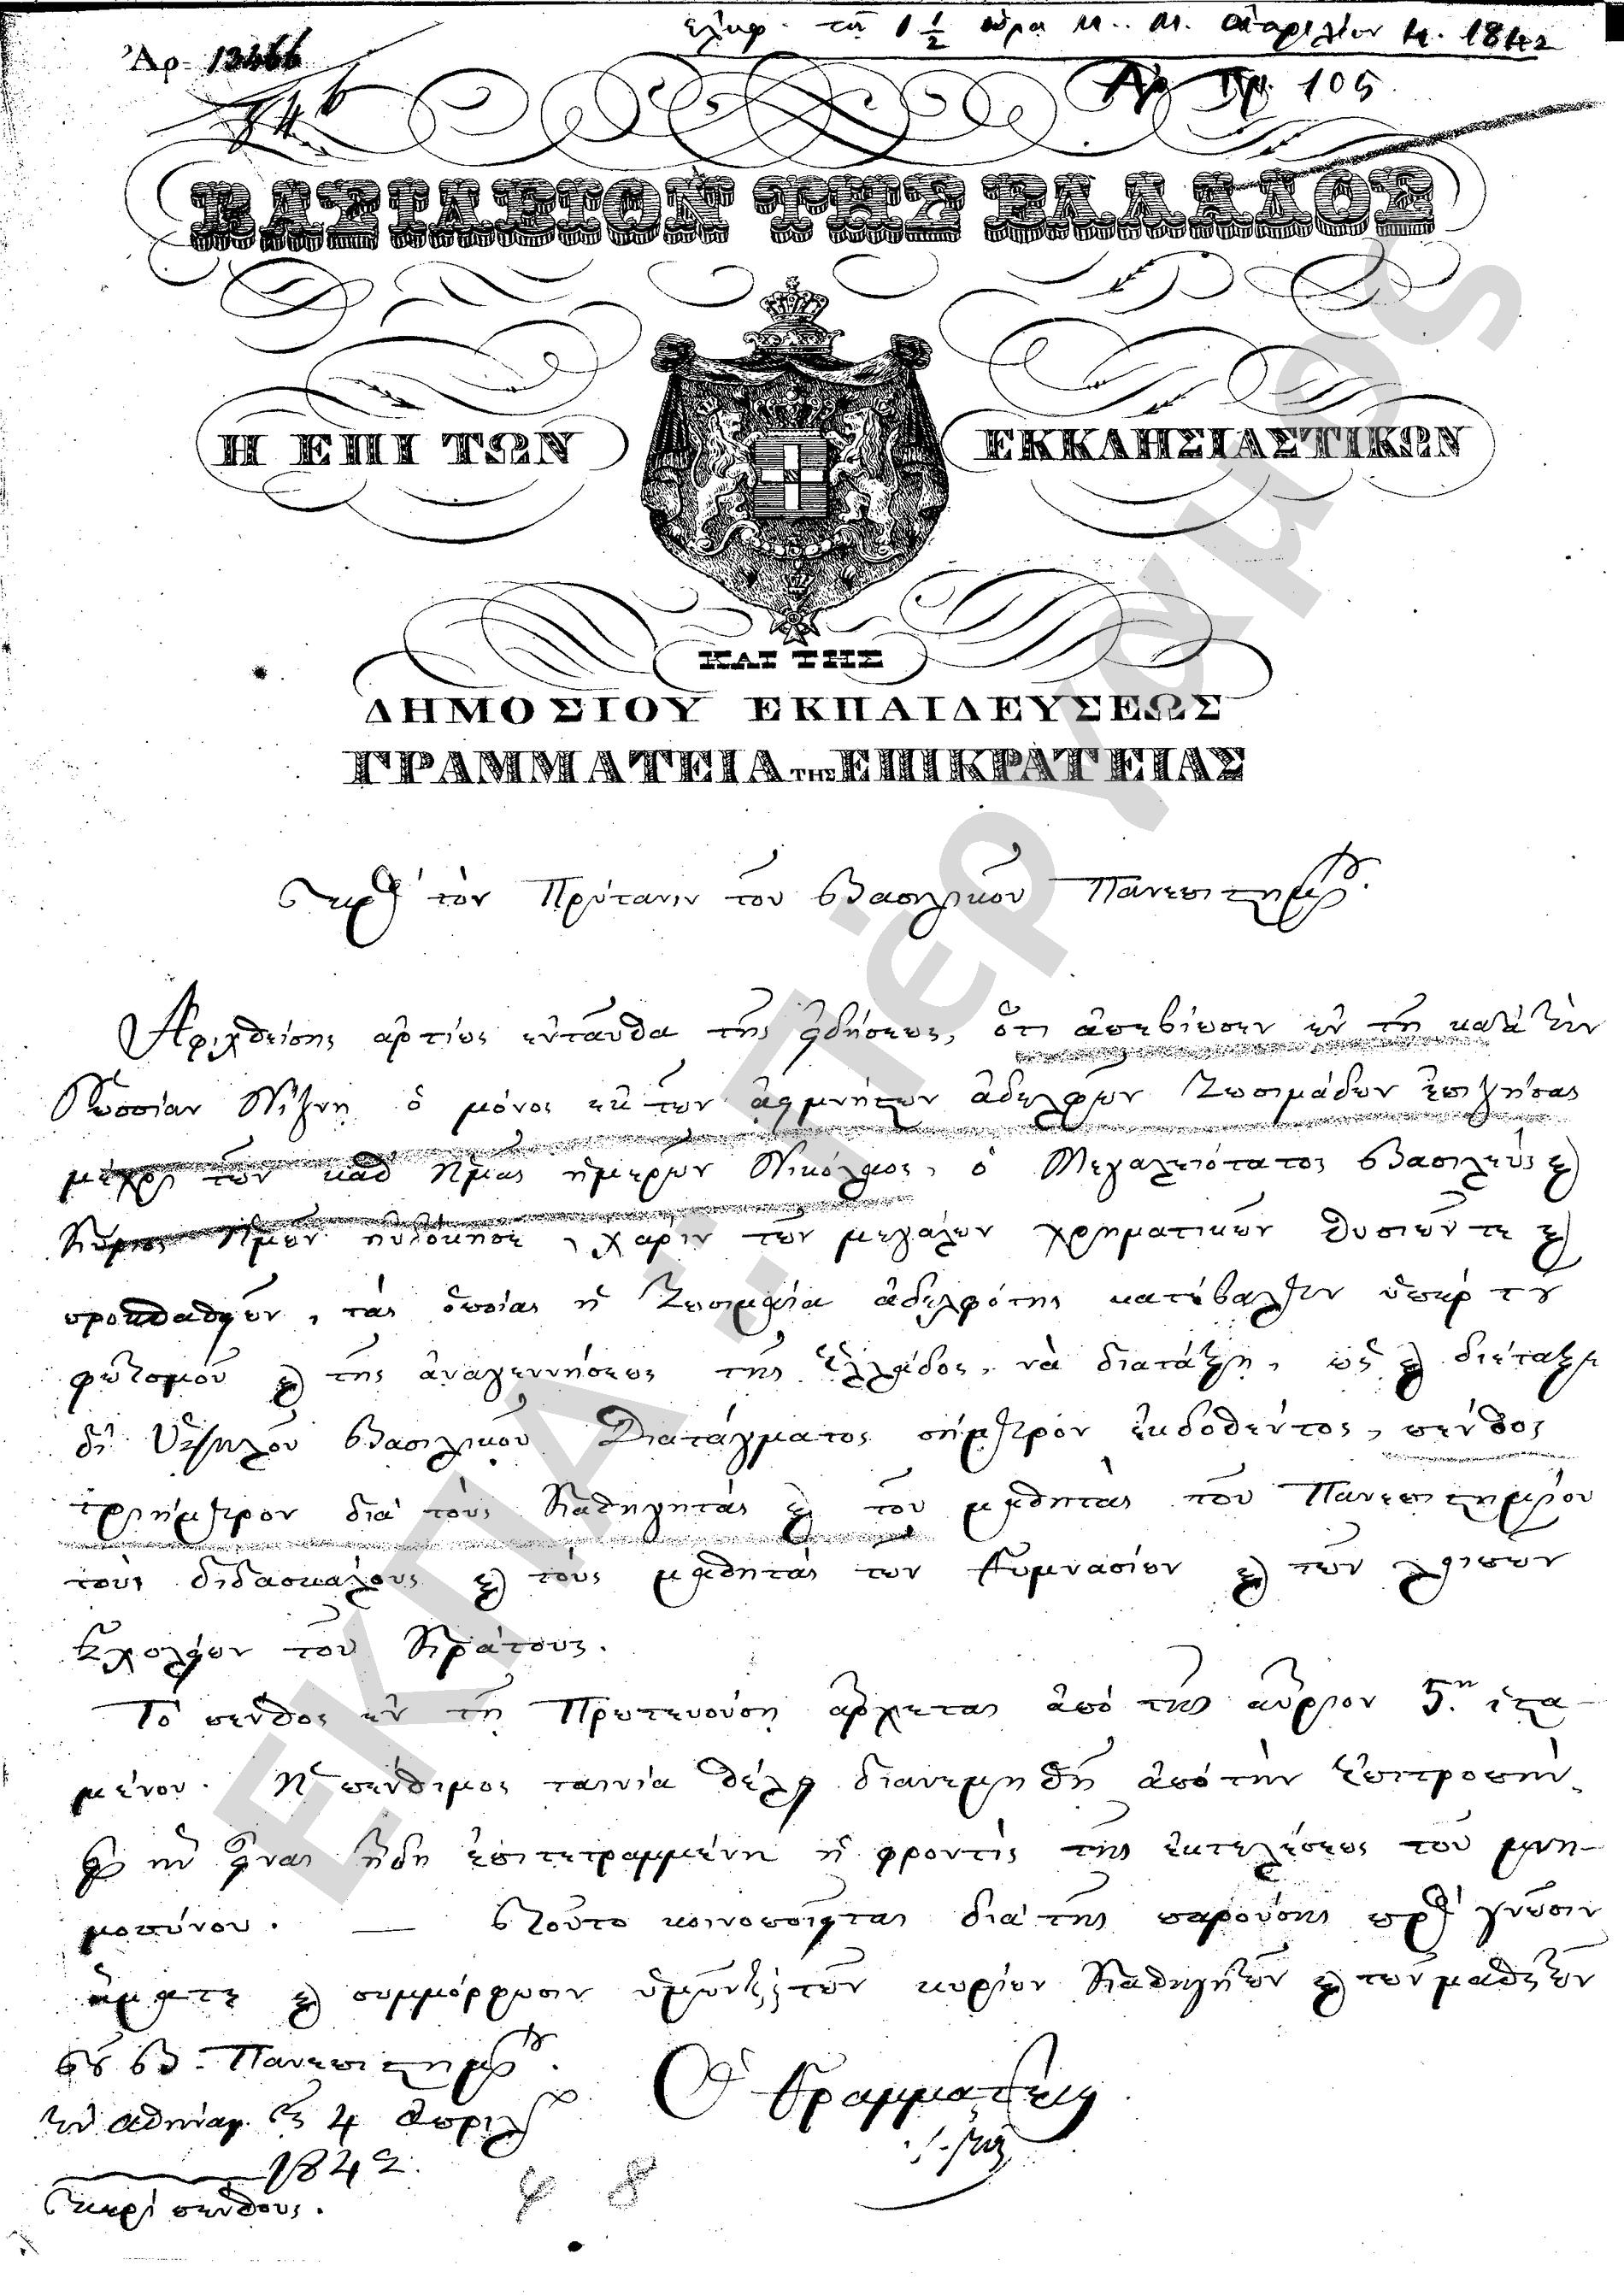 ἐλήφ. τῇ 1 1/2 ὥρα μ. μ. ἀπριλίου 4. 1842
Ἀρ.
Ἀρ. Πρ. 105
ΒΑΣΙΛΕΙΟΝ ΤΗΣ ΕΛΛΑΔΟΣ
Η ΕΠΙ ΤΩΝ ΕΚΚΛΗΣΙΑΣΤΙΚΩΝ
ΚΑΙ ΤΗΣ
ΔΗΜΟΣΙΟΥ ΕΚΠΑΙΔΕΥΣΕΩΣ
ΓΡΑΜΜΑΤΕΙΑ ΤΗΣ ΕΠΙΚΡΑΤΕΙΑΣ
Πρὸς τὸν Πρύτανιν τοῦ Βασιλικοῦ Πανεπιστημίου.
Ἀφιχθείσης ἀρτίως ἐνταῦθα τῆς εἰδήσεως, ὅτι ἀπεβίωσεν ἐν τῇ κατὰ τὴν
Ῥωσσίαν Νίζνῃ ὁ μόνος ἐκ τῶν ἀειμνήστων ἀδελφῶν Ζωσιμάδων ἐπιζήσας
μέχρι τῶν καθ' ἡμᾶς ἡμερῶν Νικόλαος, ὁ Μεγαλειότατος Βασιλεὺς καὶ
Κύριος ἡμῶν ηὐδόκησε, χάριν τῶν μεγάλων χρηματικῶν θυσιῶν τε καὶ
προσπαθειῶν, τὰς ὁποίας ἡ Ζωσιμαία ἀδελφότης κατέβαλεν ὑπὲρ τοῦ
φωτισμοῦ καὶ τῆς ἀναγεννήσεως τῆς Ἑλλάδος, νὰ διατάξῃ, ὡς καὶ διέταξε
δι' Ὑψηλοῦ Βασιλικοῦ Διατάγματος σήμερον ἐκδοθέντος, πένθος
τριήμερον διὰ τοὺς Καθηγητὰς καὶ τοὺ μαθητὰς τοῦ Πανεπιστημίου
τοὺς διδασκάλους καὶ τοὺς μαθητὰς τῶν Γυμνασίων καὶ τῶν λοιπῶν
Σχολείων τοῦ Κράτους.
Τὸ πένθος ἐν τῇ Πρωτευούσῃ ἄρχεται ἀπὸ τῆς αὔριον 5.η ἱστα-
μένου. Ἡ πένθιμος ταινία θέλει διανεμηθῆ ἀπὸ τὴν Ἐπιτροπὴν,
εἰς ἣν εἶναι ἤδη ἐπιτετραμμένη ἡ φροντὶς τῆς ἐκτελέσεως τοῦ μνη-
μοσύνου. — Τοῦτο κοινοποιεῖται διὰ τῆς παρούσης πρὸς γνῶσιν
ἅμα τε καὶ συμμόρφωσιν ὑμῶν τε καὶ τῶν κυρίων Καθηγητῶν καὶ τῶν μαθητῶν
τοῦ Β. Πανεπιστημίου.
Ἐν Ἀθήναις τῇ 4 Ἀπριλίου
1842.
Ὁ Γραμματεὺς
Περὶ πένθους.
ΕΚΠΑ - Πέργαμος